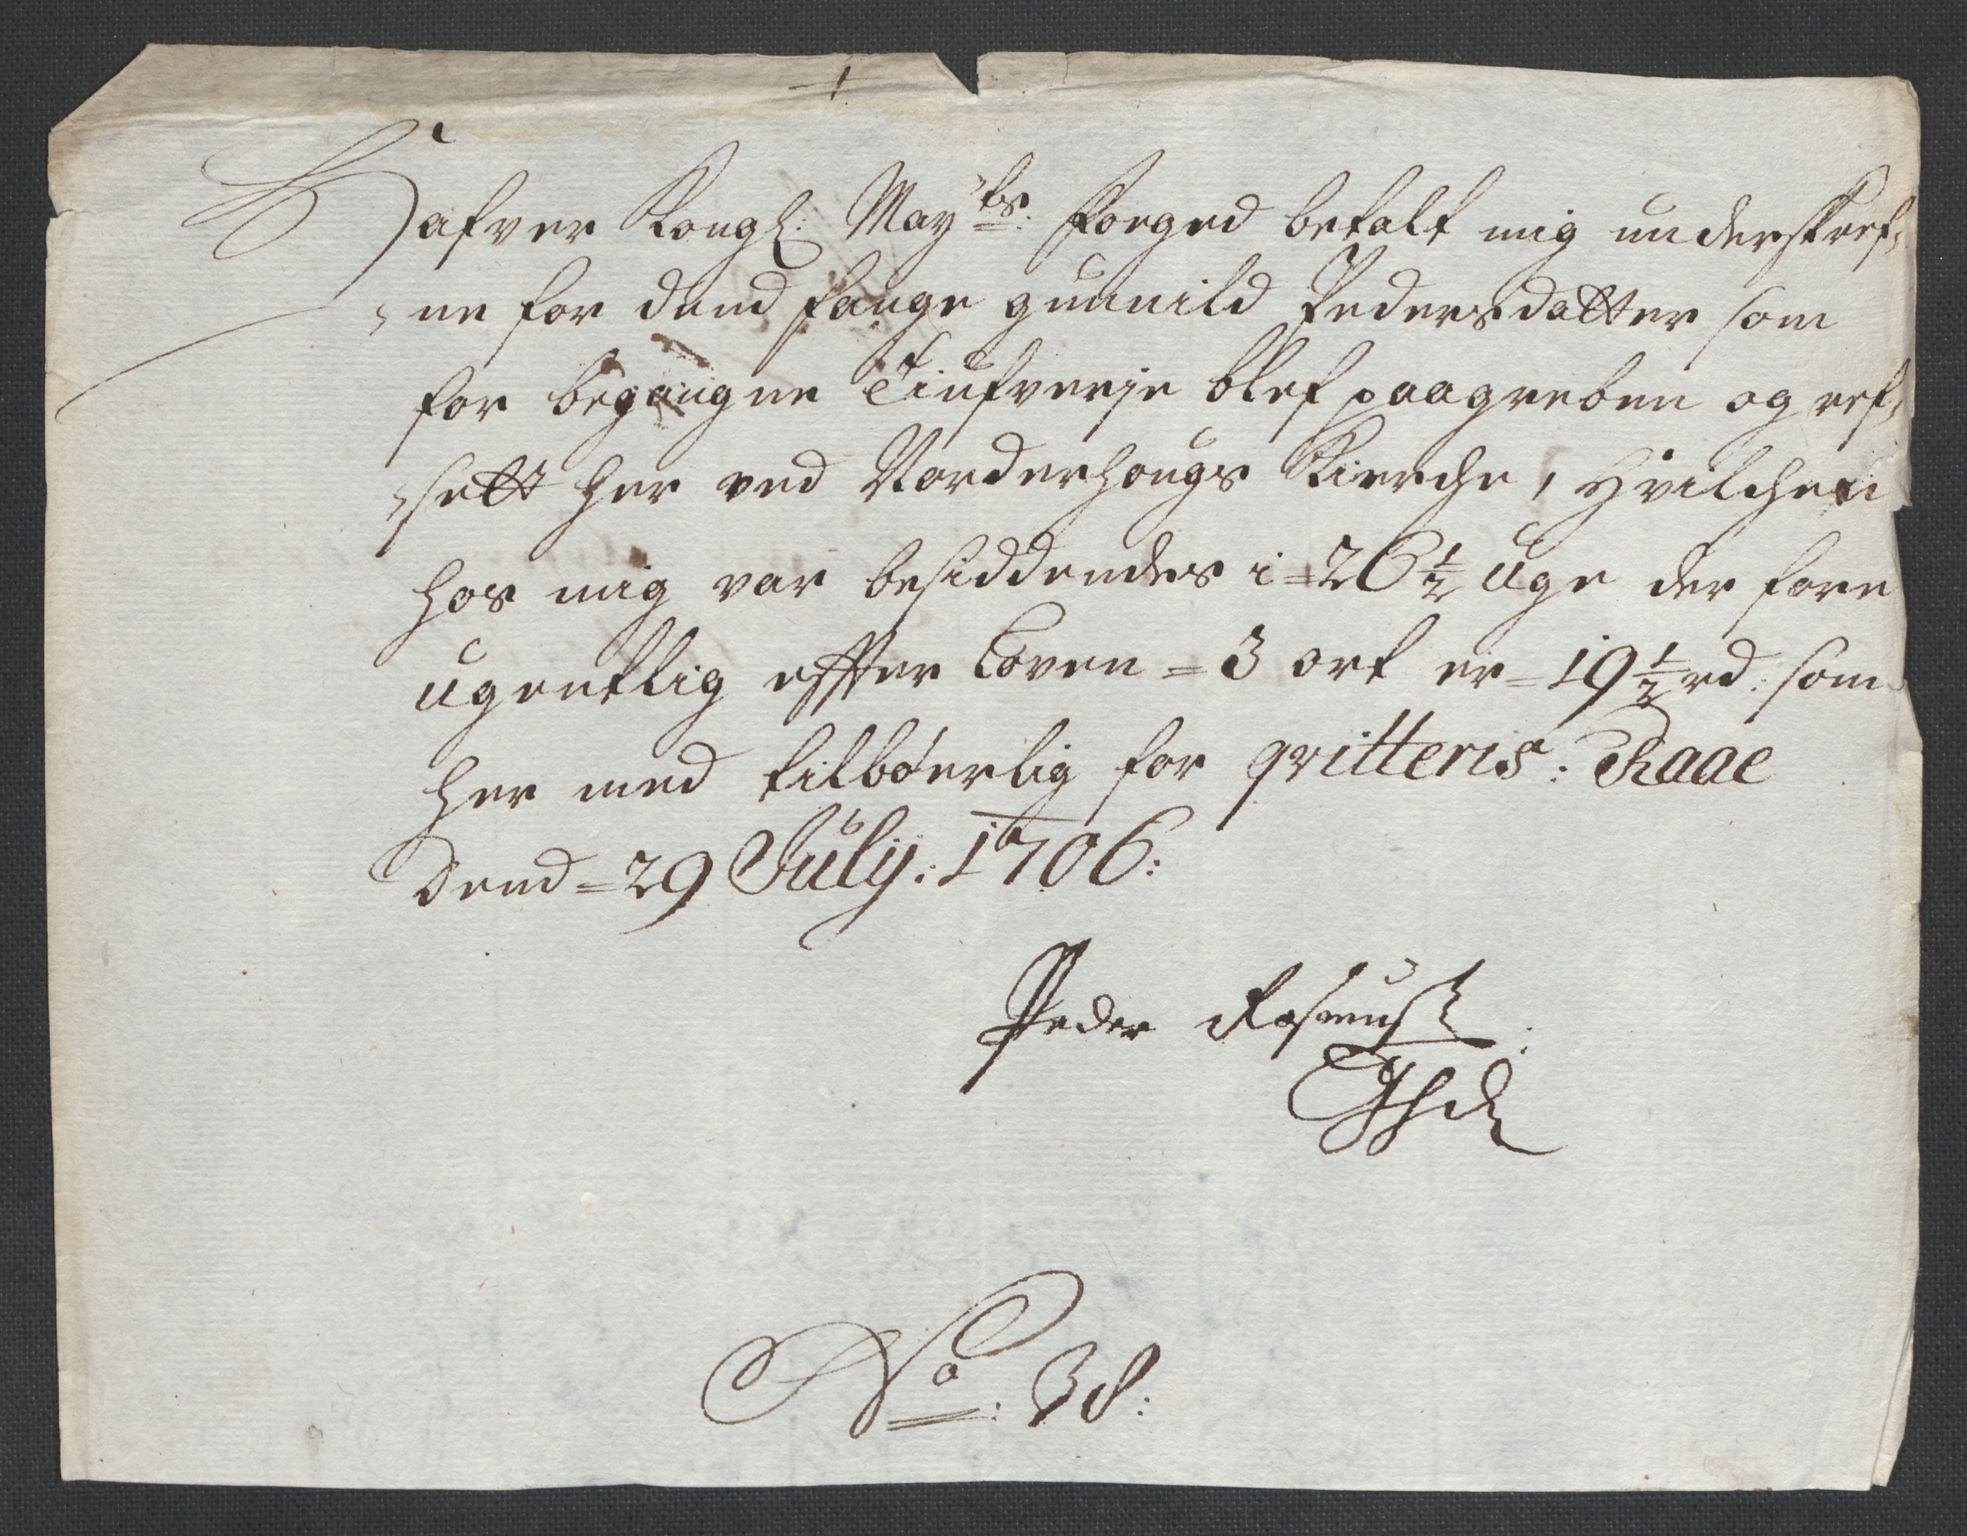 Hafver Kongl: May.ts Foged betalt mig underskref-
-ne for dend fange gunnild Pedersdatter som
for begangne Tiufverje blef paagreben og ref-
-sett her ved Norderhougs Kierche, Hvilchen
hos mig var besiddendes i = 26 1/2 Uge der fore
ugentlig effter Loven = 3 ort er = 19 1/2 rd: som
her med tilbørlig for qvitteris: Raae
Dend = 29 July: 1706:
Peder Rasmus
No: 38: